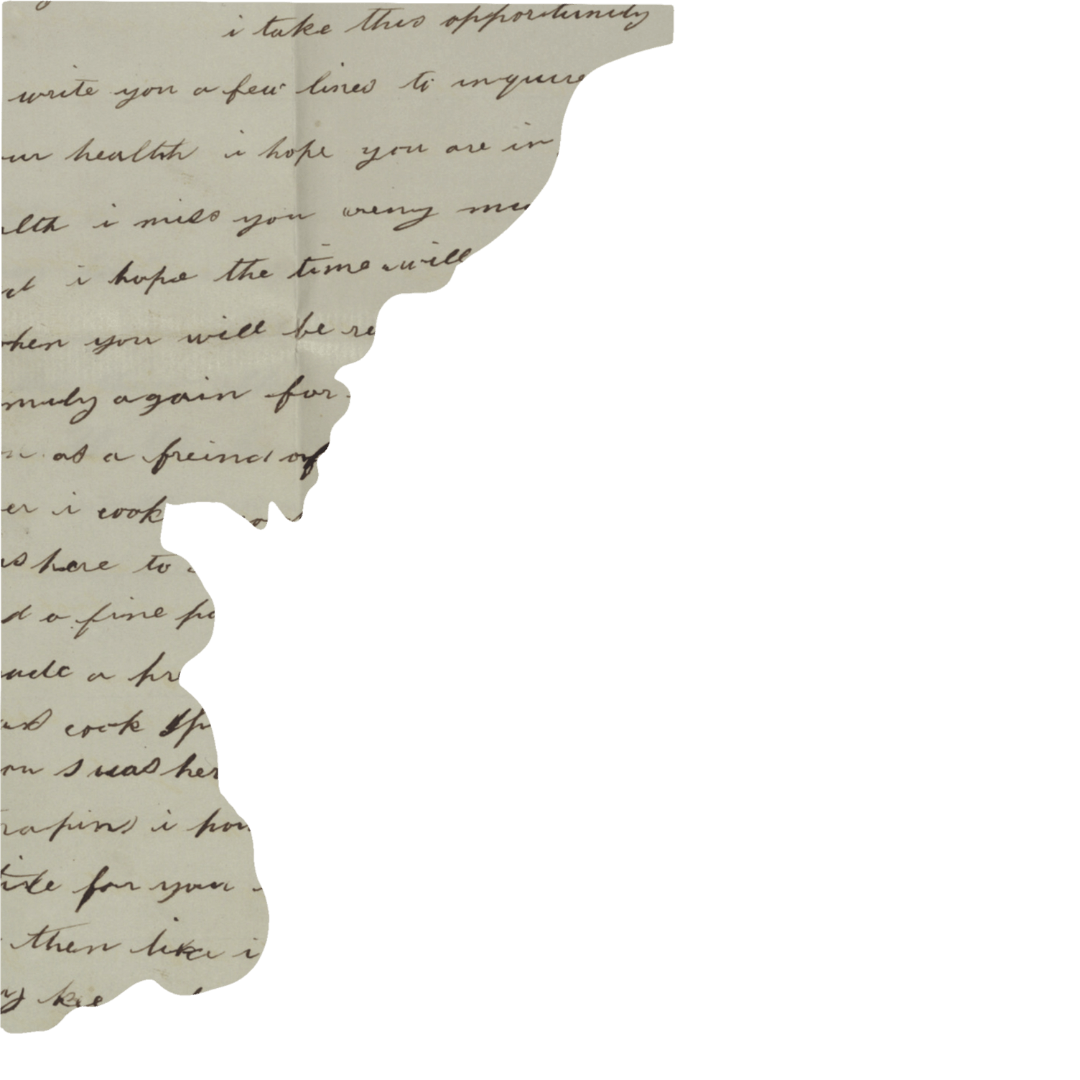 i take this opportunity
write you a few lines to inquire
ur health i hope you are in
alth i miss you werry mu
i hope the time will
when you will be re
mily again for
as a freind of
er i cook
as here to
d a fine po
made a pr
as cook Sp
was her
rapins i hou
tire for your
then like i